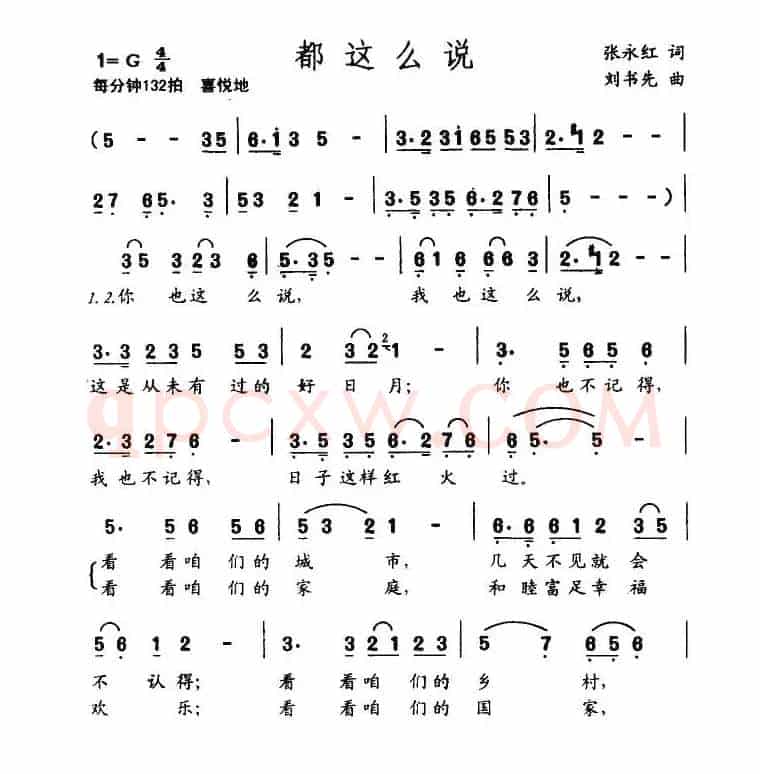 都这么说
1=G 4/4
张永红 词
每分钟132拍 喜悦地
刘书先 曲
(5 - - 35 | 6·i 3 5 - | 3·2 3i 65 53 | 2· 2 - - |
27 65· 3 | 53 21 - | 3·5 35 6·2 76 | 5 - - - ) |
35 323 6 | 5·35 - - | 616 663 | 2· 12 - - |
1.2.你 也这 么 说, 我 也这 么 说,
3·3 235 53 | 2 32 2 1 - | 3· 565 6 |
这是从未有 过的 好 日 月; 你 也不记 得,
2·3 276 - | 3·5 35 6·2 76 | 65· 5 - |
我也不记得, 日子这样红 火 过。
5· 56 56 | 53 21 - | 6·6 612 35 |
看 看咱 们的 城 市, 几天不见就 会
看 看咱 们的 家 庭, 和睦富足幸 福
56 12 - | 3· 321 23 | 5 7 656 |
不 认得; 看 看咱 们的 乡 村,
欢 乐; 看 看咱 们的 国 家,
qpcxw.COM